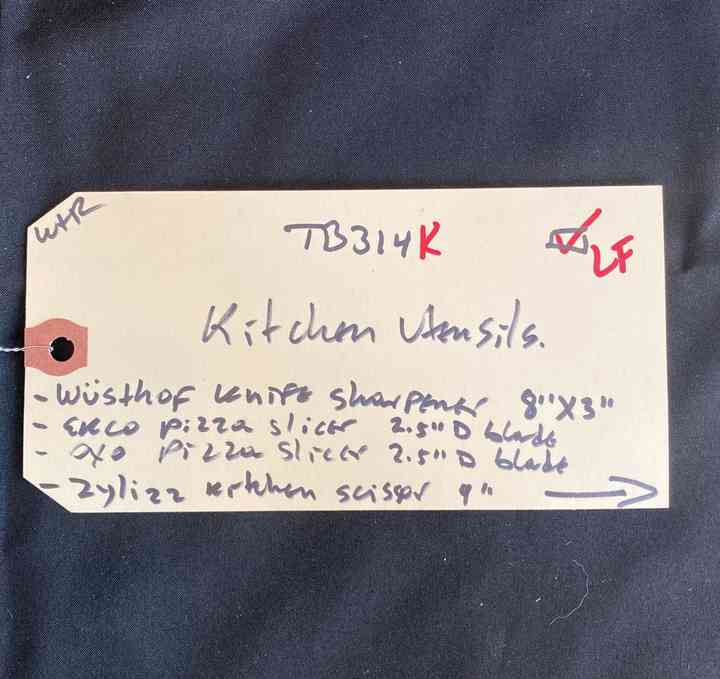 WHR
TB314K
LF
Kitchen Utensils.
- Wüsthof knife sharpener 8"X3"
- EKCO pizza slicer 2.5" D blade
- OXO Pizza Slicer 2.5" D blade
- Zylizz kitchen scissor 9"